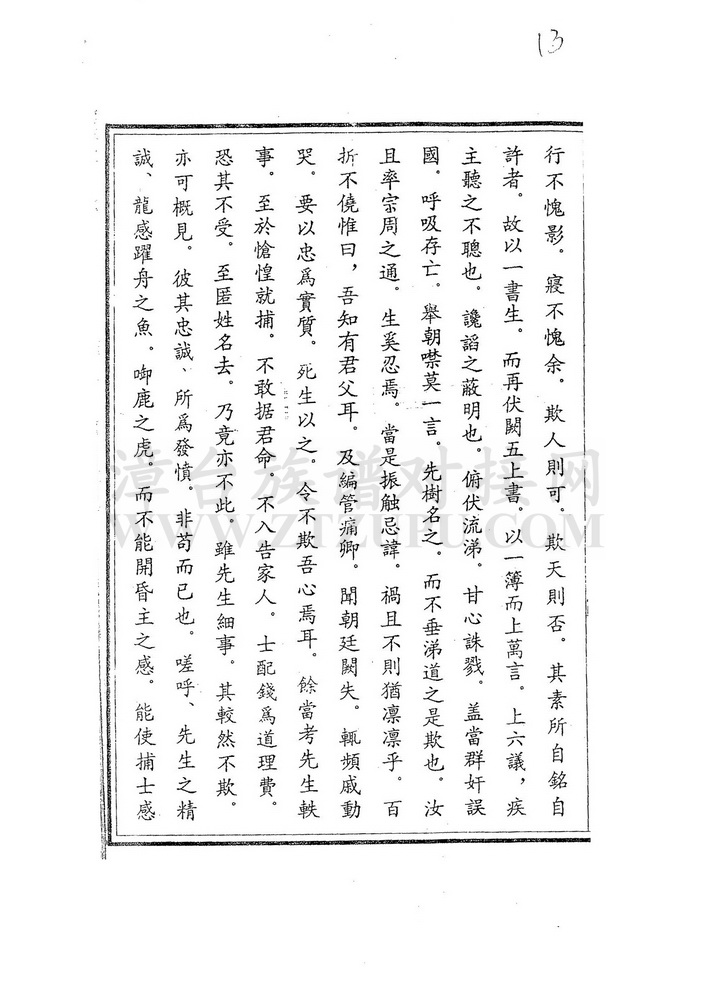 13
行不愧影。寢不愧余。欺人則可。欺天則否。其素所自銘自
許者。故以一書生。而再伏闕五上書。以一簿而上萬言。上六議，疾
主聽之不聰也。讒謟之蔽明也。俯伏流涕。甘心誅戮。盖當群奸誤
國。呼吸存亡。舉朝噤莫一言。先樹名之。而不垂涕道之是欺也。汝
且率宗周之通。生奚忍焉。當是振触忌諱。禍且不則猶凛凛乎。百
折不僥惟曰，吾知有君父耳。及編管痛卿。聞朝廷闕失。輒頻戚動
哭。要以忠爲實質。死生以之。令不欺吾心焉耳。餘當考先生軼
事。至於愴惶就捕。不敢据君命。不入告家人。士配錢爲道理費。
恐其不受。至匿姓名去。乃竟亦不此。雖先生細事。其較然不欺。
亦可概見。彼其忠誠、所爲發憤。非苟而已也。嗟呼、先生之精
誠、龍感躍舟之魚。啣鹿之虎。而不能開昏主之感。能使捕士感
漳台族谱对接网
WWW.ZTZUPU.COM